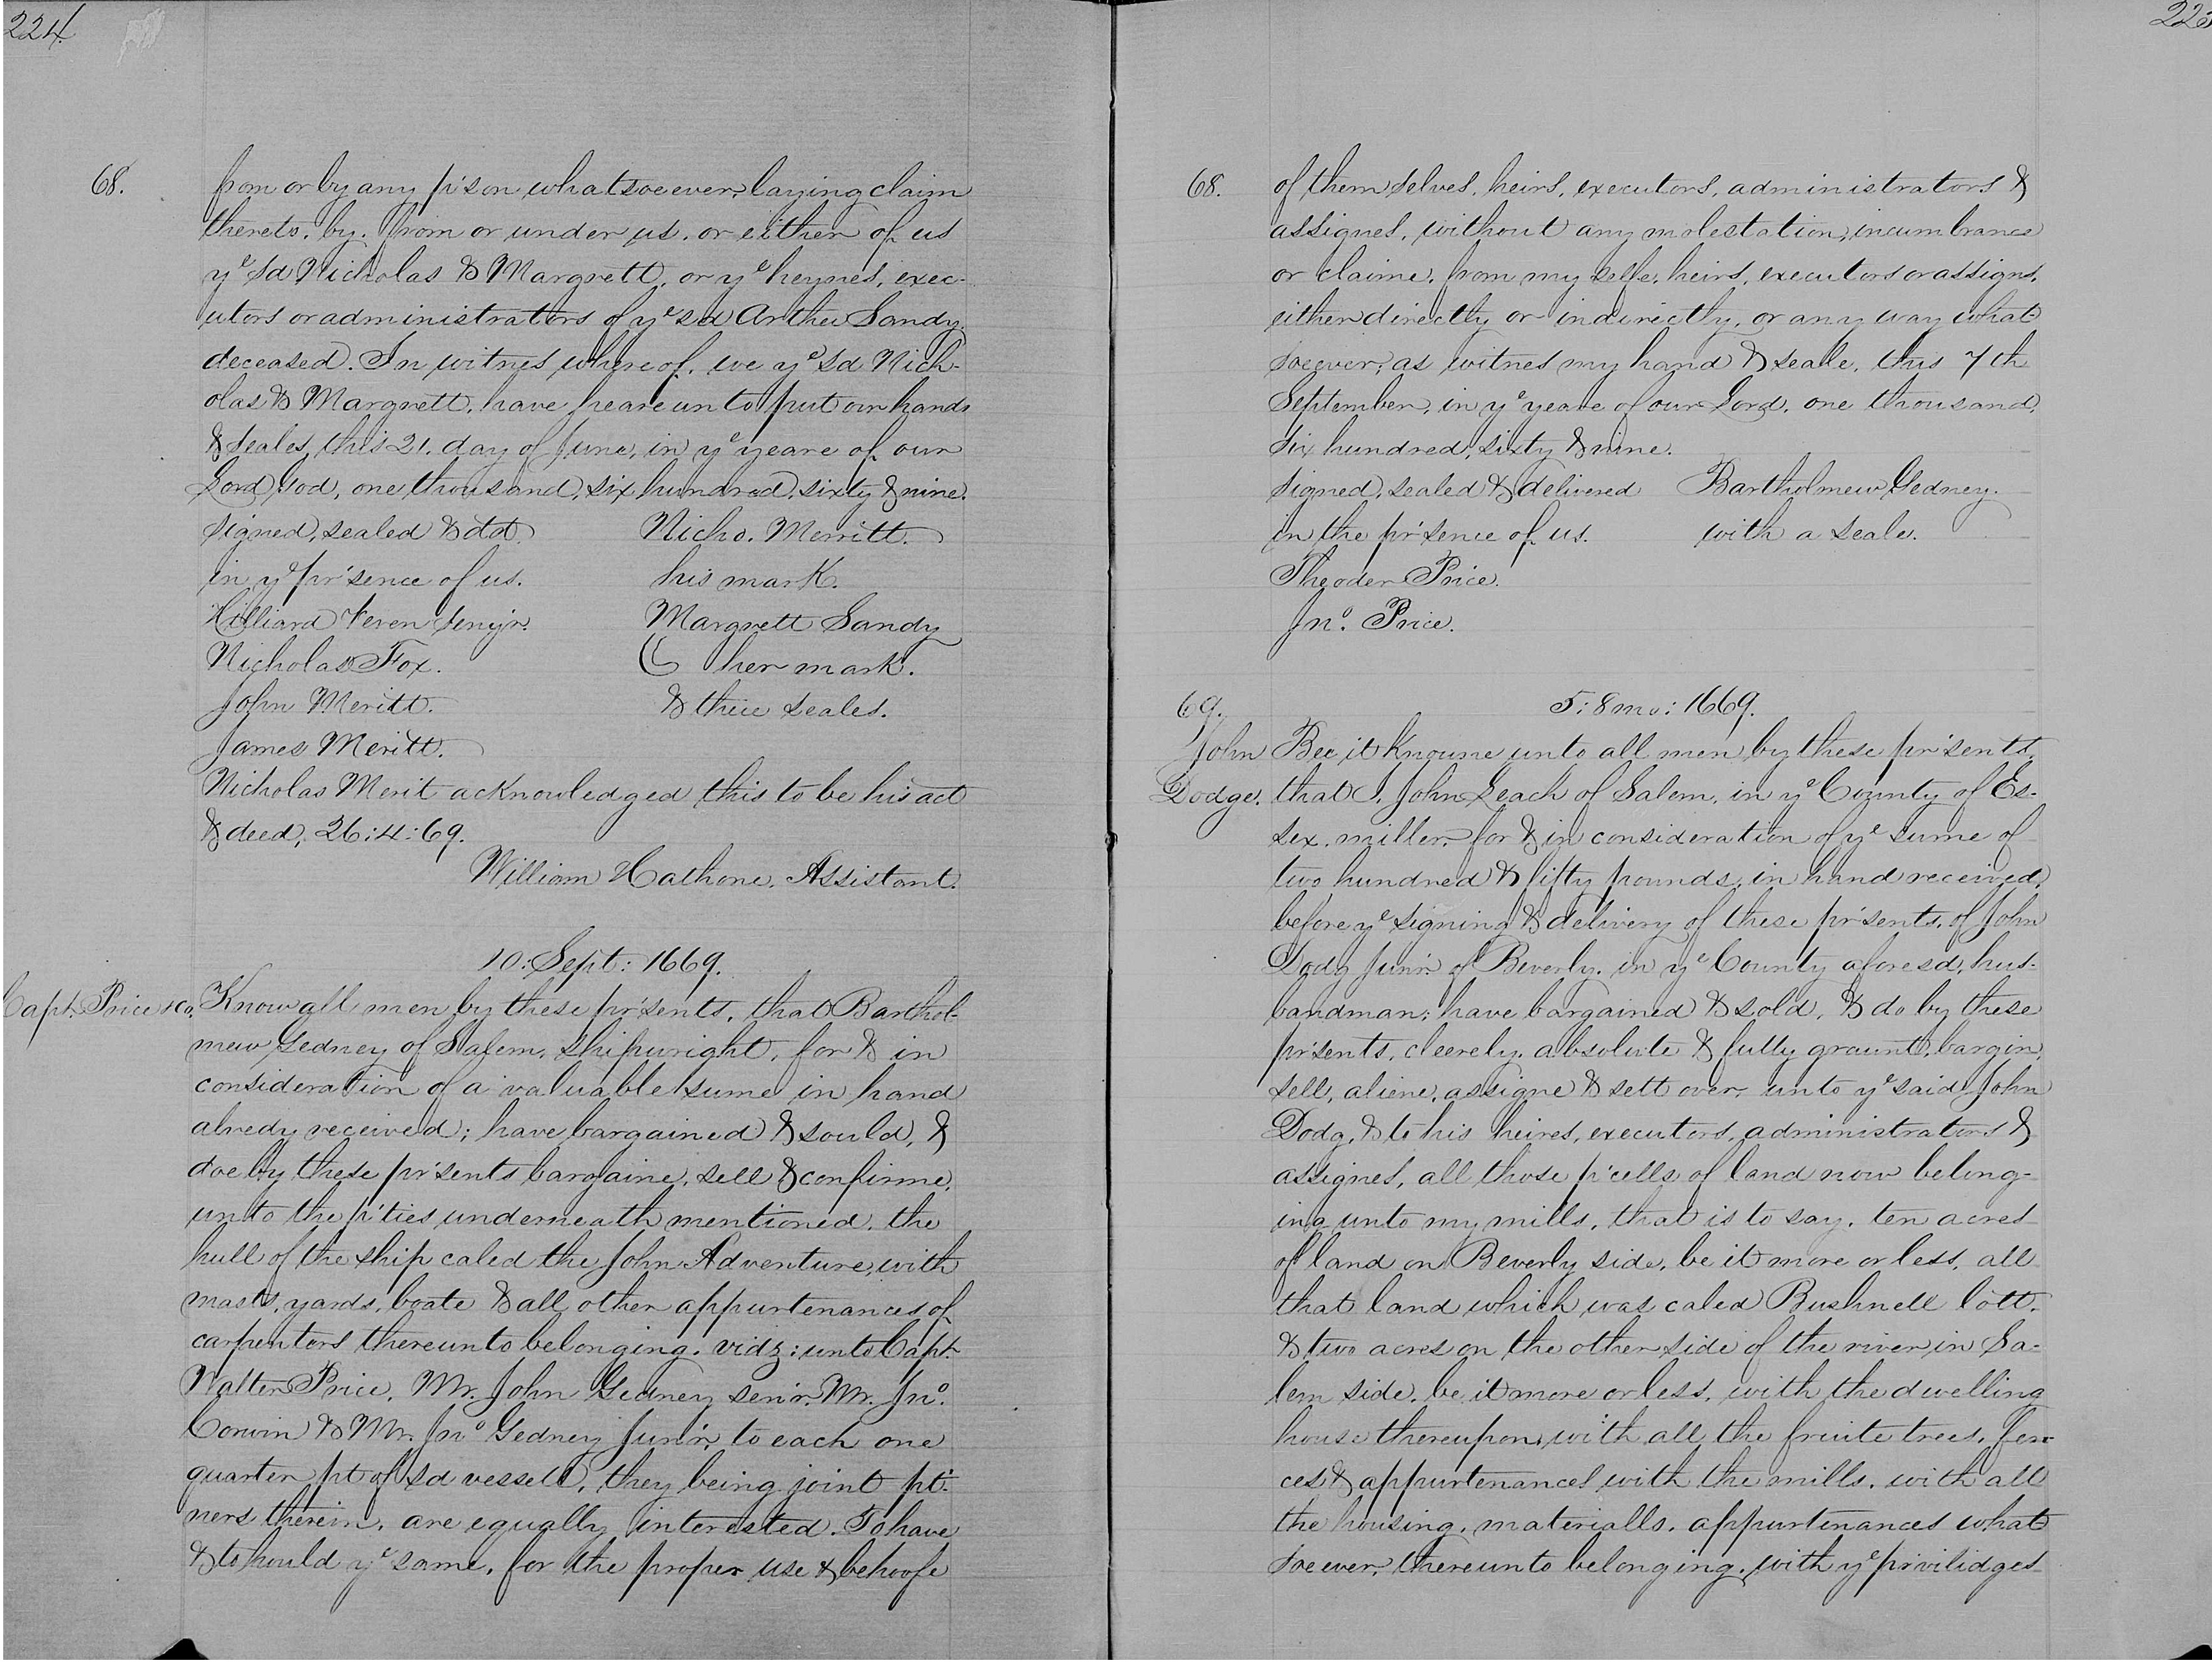 224.
68.
from or by any p'son whatsoeever, laying claim
thereto, by, from or under us, or either of us
yᵉ sd Nicholas & Margrett, or yᵉ heynes, exec-
utors or administrators of yᵉ sd Arther Sandy
deceased. In witnes whereof, we yᵉ sd Nich-
olas & Margrett, have heareunto put our hands
& seales, this 21. day of June, in yᵉ yeare of our
Lord God, one thousand, six hundred, sixty & nine.
signed, sealed & dd. Nicho. Merritt.
in yᵉ pr'sence of us. his mark.
Hilliard Veren senijr. Margrett Sandy
Nicholas Fox. her mark.
John Meritt. & theie seales.
James Meritt.
Nicholas Merit acknowledged this to be his act
& deed, 26:4:69.
William Hathone, Assistant.
10: Sept: 1669.
Capt. Price & co.
Know all men by these pr'sents, that Barthol-
mew Gedney of Salem, shipwright, for & in
consideration of a valuable sume in hand
alredy received; have bargained & sould, &
doe by these pr'sents bargaine, sell & confirme,
unto the p'ties underneath mentioned, the
hull of the ship caled the John Adventure, with
masts, yards, boate & all other appurtenances of
carpenters thereunto belonging, vidz: unto Capt.
Walter Price, Mr. John Gedney sen'r. Mr. Jnº.
Corwin & Mr. Jnº Gedney Jun'r, to each one
quarter pt of sd vessell, they being joint pt-
ners therein, are equally interested. To have
& to hould yᵉ same, for the proper use & behoofe
225
68.
of themselves, heirs, executors, administrators &
assignes, without any molestation, incumbrance
or claime, from my selfe, heirs, executors or assigns,
either directly or indirectly, or any way what-
soeever; as witnes my hand & seale, this 7th
September, in yᵉ yeare of our Lord, one thousand,
six hundred, sixty & nine.
signed, sealed & delivered Bartholmew Gedney.
in the pr'sence of us. with a seale.
Theoder Price.
Jnº. Price.
5: 8 mo: 1669.
69.
John
Dodge.
Bee it knowne unto all men by these pr'sents,
that I, John Leach of Salem, in yᵉ County of Es-
sex, miller, for & in consideration of yᵉ sume of
two hundred & fifty pounds, in hand received,
before yᵉ signing & delivery of these pr'sents, of John
Dodg Jun'r. of Beverly, in yᵉ County aforesd, hus-
bandman; have bargained & sold, & do by these
pr'sents, cleerely, absolute & fully graunt, bargin,
sell, aliene, assigne & sett over, unto yᵉ said John
Dodg, & to his heires, executors, administrators &
assignes, all those p'cells of land now belong-
ing unto my mills, that is to say, ten acres
of land on Beverly side, be it more or less, all
that land which was caled Bushnell lott,
& two acres on the other side of the river in Sa-
lem side, be it more or less, with the dwelling
house thereupon, with all the fruite trees, fen-
ces & appurtenances with the mills, with all
the housing, materialls, appurtenances what-
soeever, thereunto belonging, with yᵉ privilidges